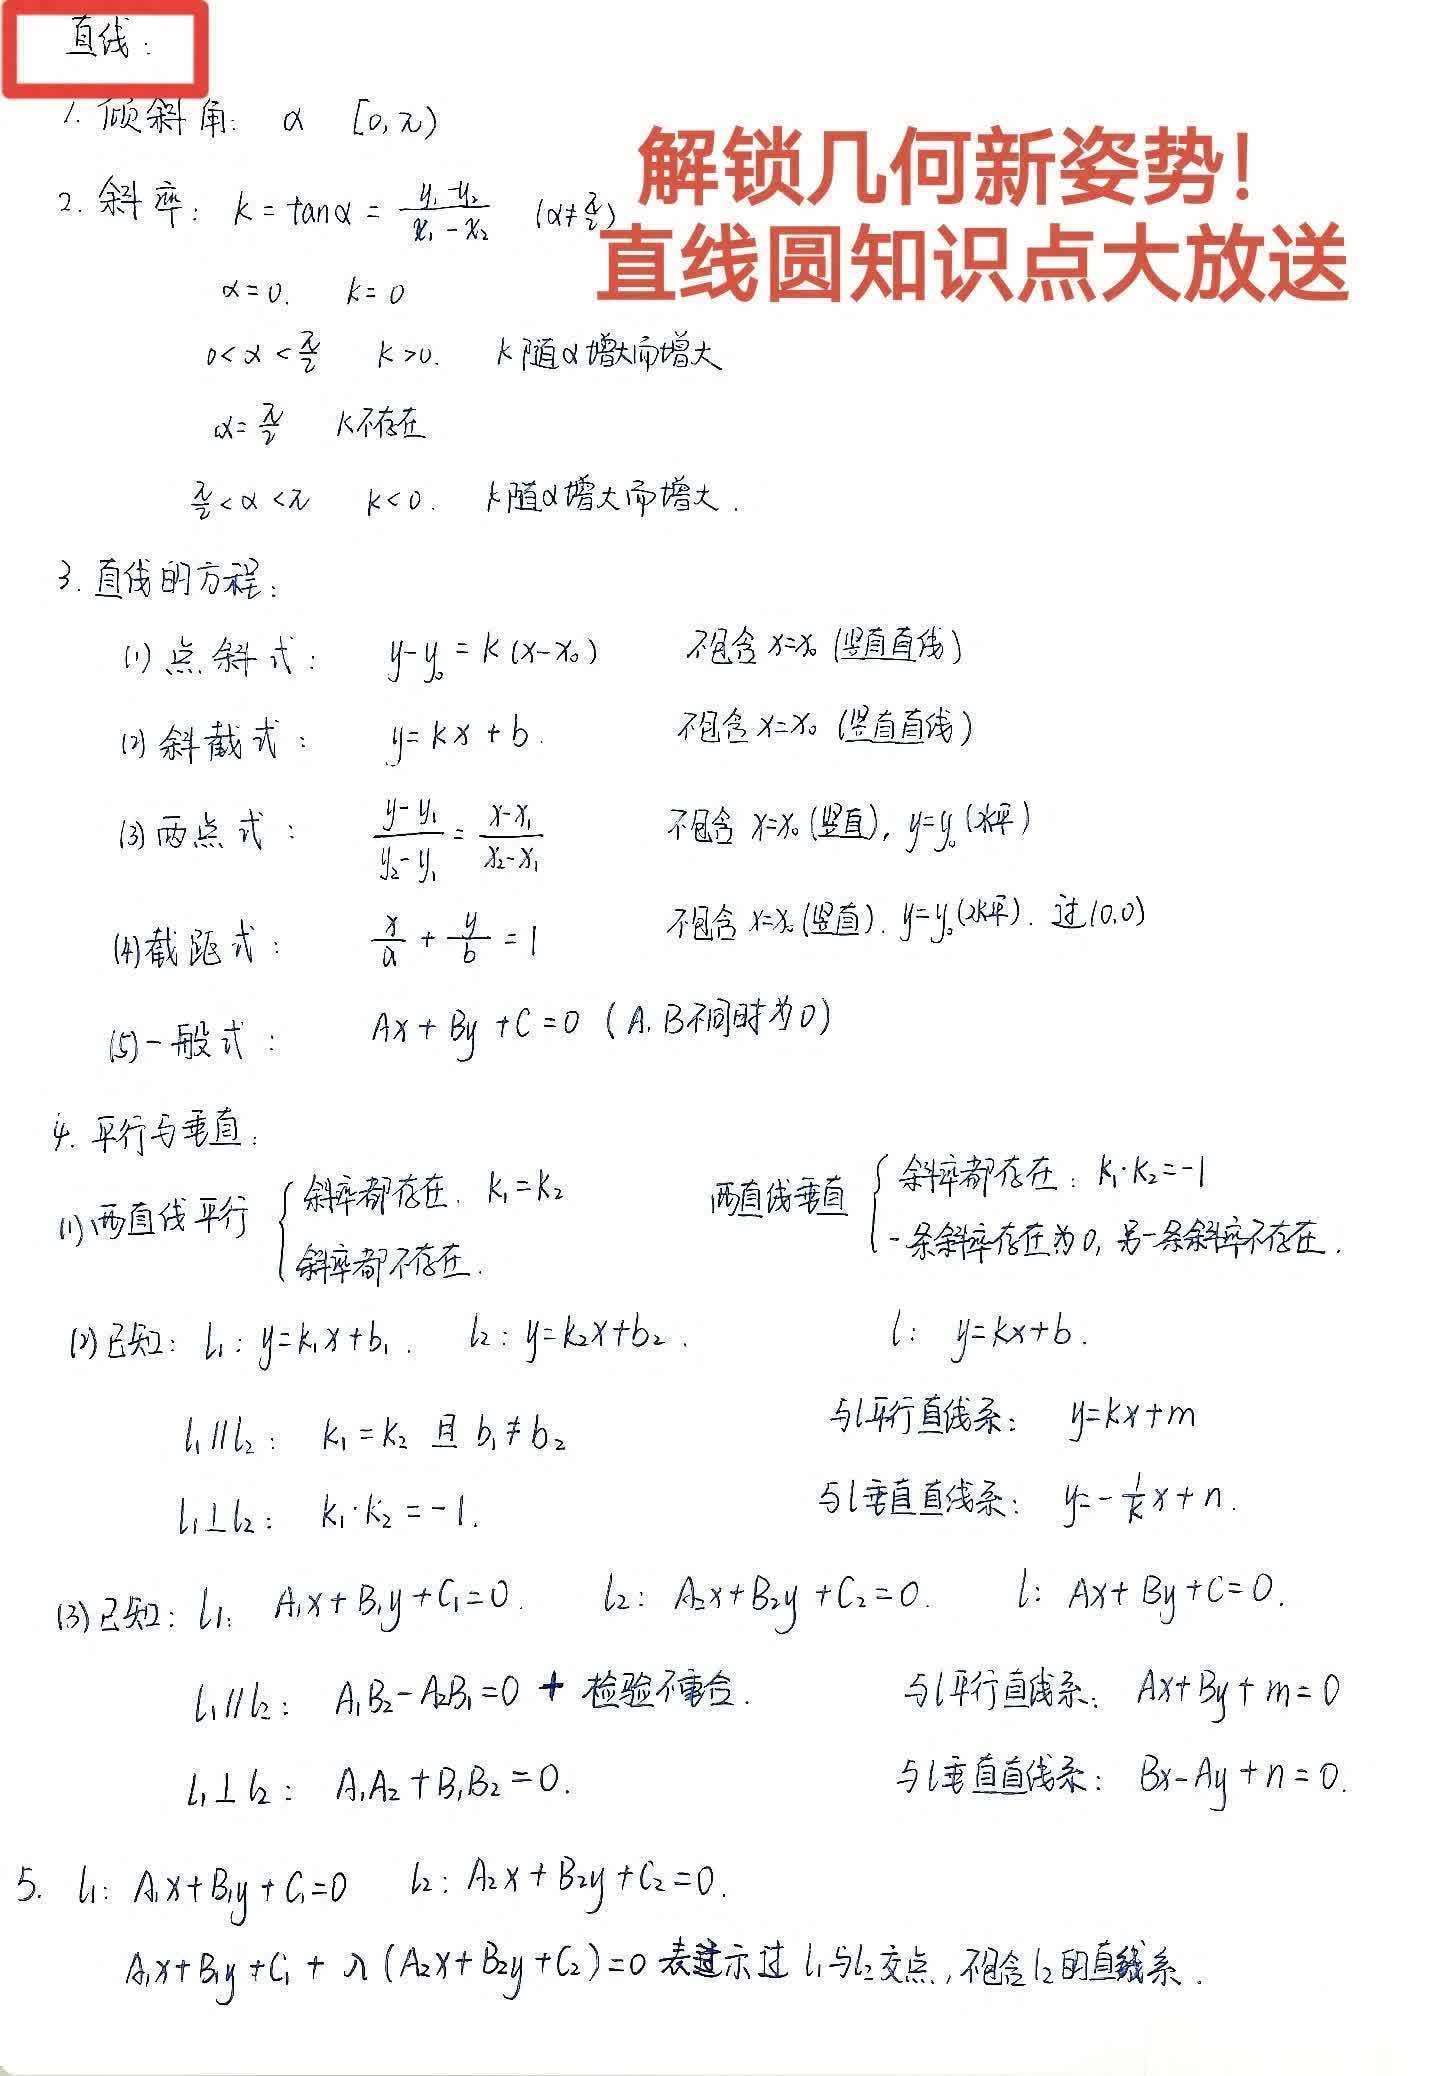 直线：
1. 倾斜角： α [0,π)
解锁几何新姿势！
直线圆知识点大放送
2. 斜率： k = tanα = (y₁-y₂)/(x₁-x₂) (α≠π/2)
α=0. k=0
0<α<π/2 k>0. k随α增大而增大
α=π/2 k不存在
π/2<α<π k<0. k随α增大而增大.
3. 直线的方程：
(1) 点斜式： y-y₀=k(x-x₀) 不包含 x=x₀ (竖直直线)
(2) 斜截式： y=kx+b. 不包含 x=x₀ (竖直直线)
(3) 两点式： (y-y₁)/(y₂-y₁)=(x-x₁)/(x₂-x₁) 不包含 x=x₀(竖直), y=y₀(水平)
(4) 截距式： x/a + y/b = 1 不包含 x=x₀(竖直). y=y₀(水平). 过(0,0)
(5) 一般式： Ax+By+C=0 (A.B不同时为0)
4. 平行与垂直：
(1) 两直线平行 { 斜率都存在. k₁=k₂ 两直线垂直 { 斜率都存在: k₁·k₂=-1
斜率都不存在. 一条斜率存在为0, 另一条斜率不存在.
(2) 已知: l₁: y=k₁x+b₁. l₂: y=k₂x+b₂. l: y=kx+b.
l₁∥l₂: k₁=k₂ 且 b₁≠b₂ 与l平行直线系: y=kx+m
l₁⊥l₂: k₁·k₂=-1. 与l垂直直线系: y=-1/k x+n.
(3) 已知: l₁: A₁x+B₁y+C₁=0. l₂: A₂x+B₂y+C₂=0. l: Ax+By+C=0.
l₁∥l₂: A₁B₂-A₂B₁=0 + 检验不重合. 与l平行直线系: Ax+By+m=0
l₁⊥l₂: A₁A₂+B₁B₂=0. 与l垂直直线系: Bx-Ay+n=0.
5. l₁: A₁x+B₁y+C₁=0 l₂: A₂x+B₂y+C₂=0.
A₁x+B₁y+C₁+λ(A₂x+B₂y+C₂)=0 表示过 l₁与l₂交点, 不包含l₂的直线系.